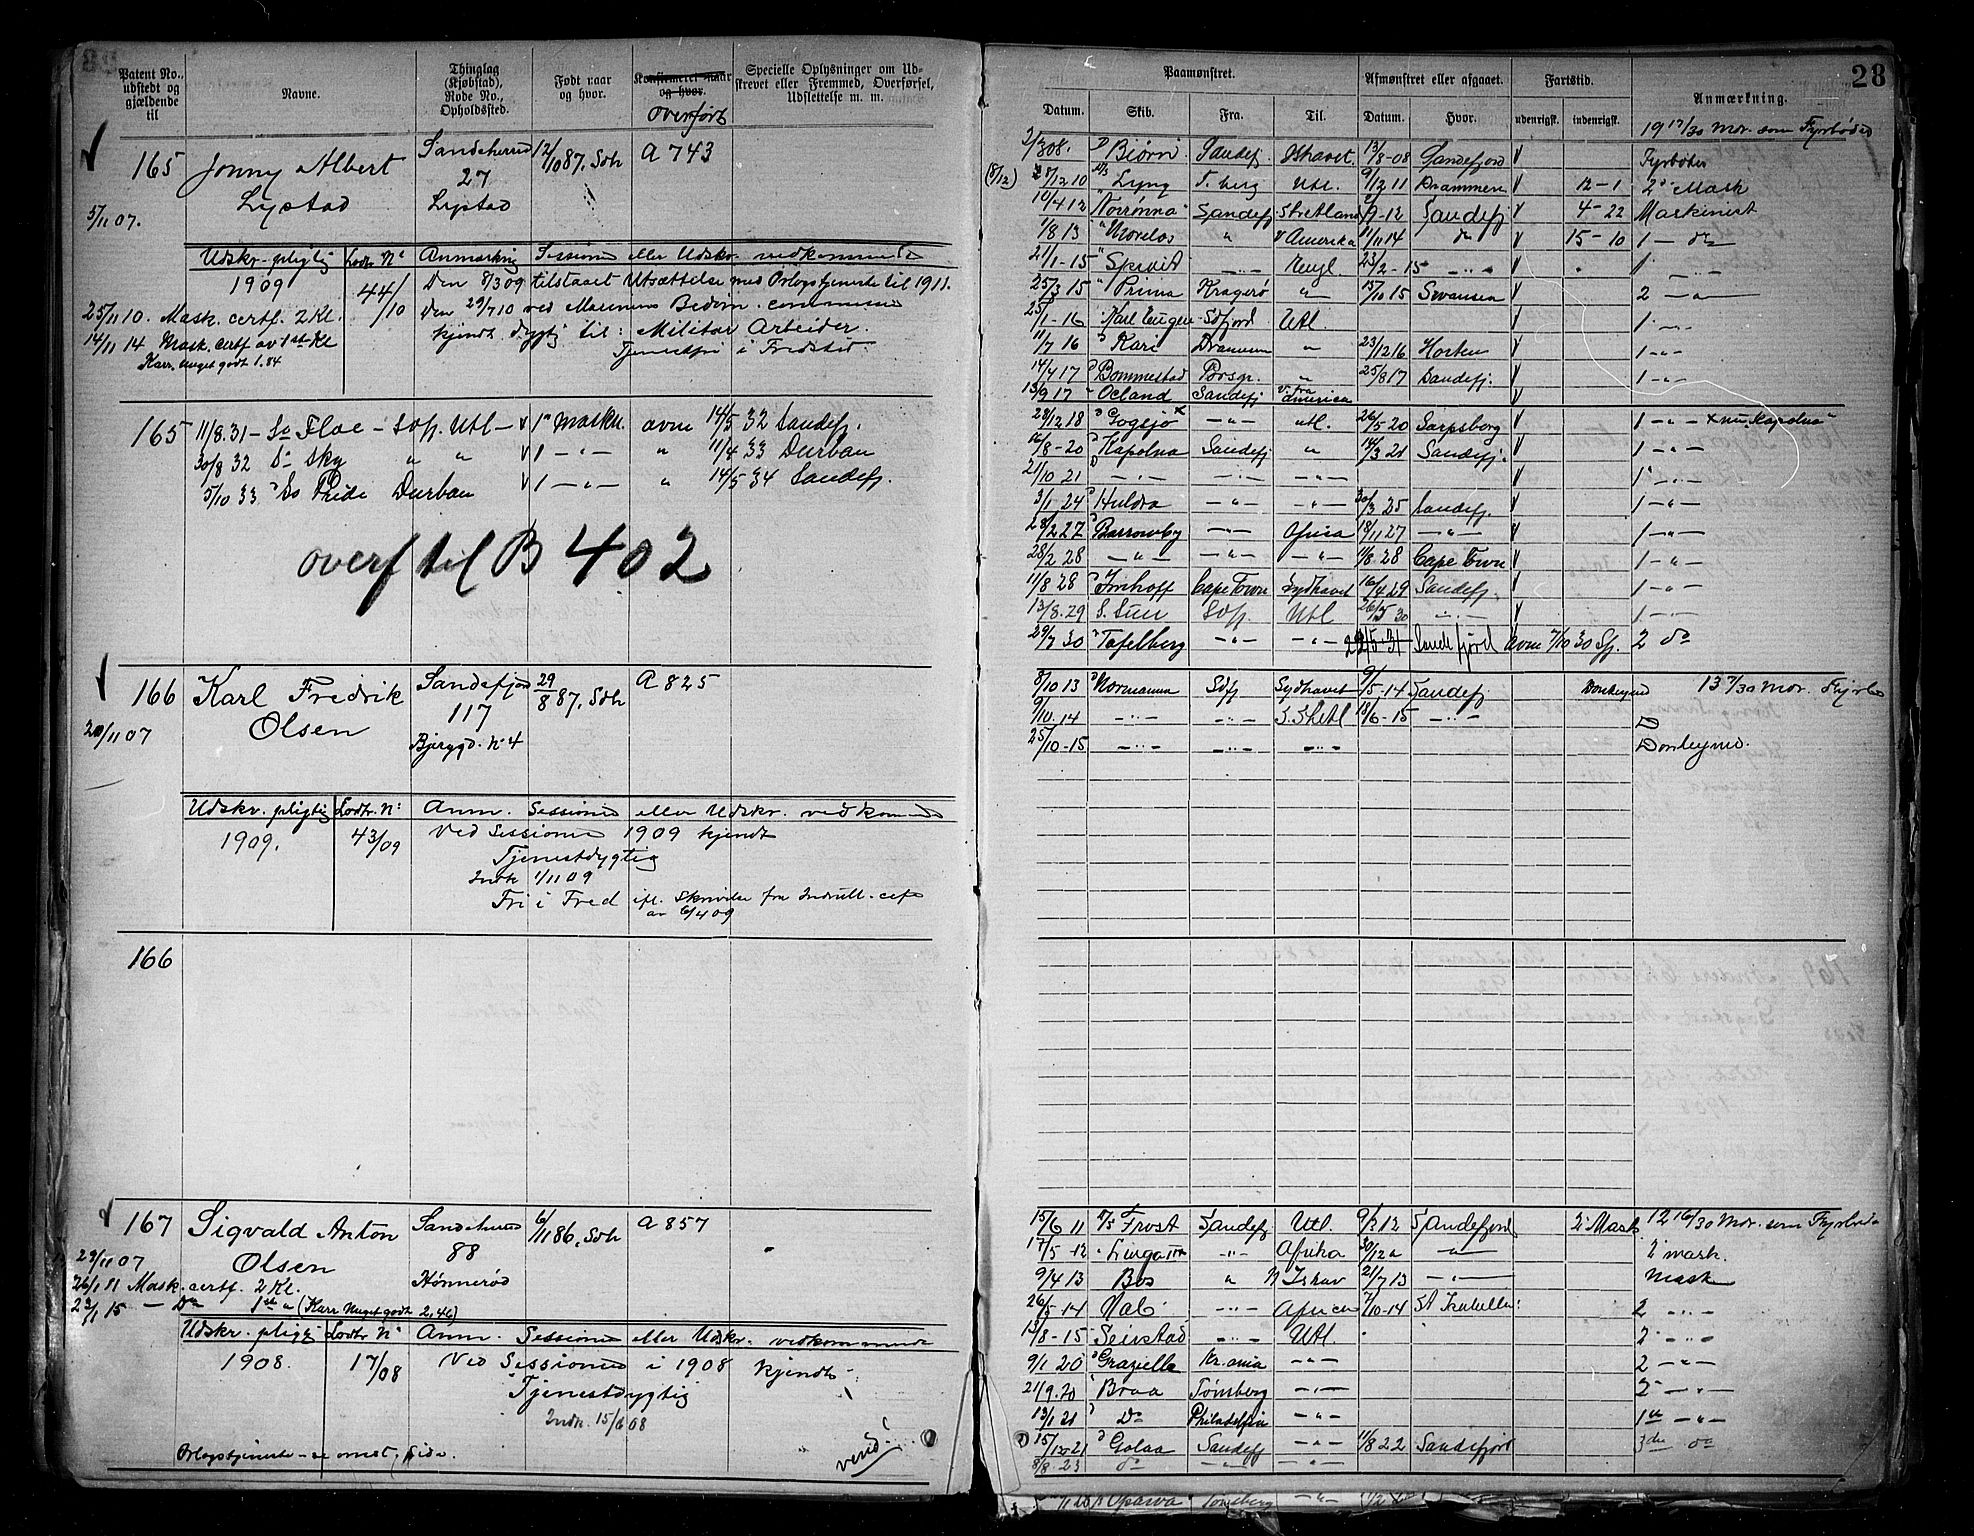 28
Patent No., udstedt og gjældende til
Navne.
Thinglag (Kjøbstad), Rode No., Opholdssted.
Født naar og hvor.
Konfirmeret naar og hvor.
overført
Specielle Oplysninger om Udstrevet eller Fremmed, Overførsel, Udslettelse m. m.
165 Jonny Albert Sandeherred 12/10 87. Sdh A 743
27
Lystad Lystad
5/11 07.
Udskr.-pligtig Lodtr. No Anmærkning Sessione eller Udskr. vedkommende
1909 44/10 Den 8/3 09 tilstaaet Utsættelse med Orlogstjeneste til 1911.
25/11 10. Mask. certf. 2 Kl. Den 29/7 10 ved Marinens Bedøm. commission
14/11 14 Mask. certf av 1st Kl kjendt dygtig til: Militær Arbeider.
Karr. meget godt 1.84 Tjenestfri i Fredstid.
165 11/8.31 – Flae – Utl – 1ste Maskn. avm 14/5 32 Sandefj.
30/8 32 Sky " " 1 – " – " 11/4 33 Durban
5/10 33 Pride Durban 1 – " – " 14/5 34 Sandefj.
overf til B 402
166 Karl Fredrik Sandefjord 29/8 87, Sdh A 825
Olsen 117
20/11 07 Bjerggd. No 4
Udskr. pligtig Lodtr. No Anm. Sessione eller Udskr. vedkommende
1909. 43/09 Ved Sessionen 1909 kjendt
Tjenestdygtig
Indk 1/11 09
Fri i Fred ifl. Skrivelse fra Indrull.
av 6/4 09
166
167 Sigvald Anton Sandeherred 6/11 86, Sdh A 857
29/11 07 Olsen 88
26/1 11 Mask. certf. 2 Kl. Hønnerød
23/1 15 – Do 1st " (Karr meget godt 2,46)
Udskr. pligtig Lodtr No Anm. Sessione eller Udskr. vedkommende
1908. 17/08 Ved Sessionen i 1908 kjendt
Tjenestdygtig
Indk. 15/6 08
Orlogstjeneste – se omst, side.
vend!
28
Paamønstret. Afmønstret eller afgaaet. Fartstid. Anmærkning.
Datum. Skib. Fra. Til. Datum. Hvor. udenrigsk. indenrigsk.
19 17/30 Mdr. som Fyrbøder
2/3 08. Biørn Sandefj Ishavet. 13/8-08 Sandefjord Fyrbøder
(8/12) 12 10 Lyng T.berg Utl. 9/12 11 Drammen 12-1 2 Mask
10/4 12 Norrønna Sandefj Shetland 9-12 Sandefj 4-22 Maskinist
1/8 13 Morelos " Amerika 11/11 14 do 15-10 1 – do
21/1-15 – " – Engl 23/2-15 – " – 1 – " –
25/3 15 Prima Kragerø " 15/10 15 Swansea 2 – " –
25/1-16 Karl Eugen Utl. 1 – " –
11/7 16 Kari Drammen " 23/12 16 Horten 1 – " –
14/4 17 Bommestad Porsgr. " 25/8 17 Sandefj. 1 – " –
13/9 17 Ocland Sandefj America
28/12 18 Gogsjø x – " – utl. 26/5 20 Sarpsborg 1 – " – x nu Kapolna
16/8-20 Kapolna Sandefj " 14/3 21 Sandefj. 1 – " –
21/10 21 – " – – " – – " – 1 – " –
3/1 24 Huldra – " – – " – 30/3 25 Sandefj. 1 – " –
28/2 27 Barrowby – " – Africa 18/11 27 – " – 1 – " –
28/2 28 – " – – " – – " – 11/8.28 Cape Town 1 – " –
11/8 28 Imhoff Cape Town Sydhavet 16/4 29 Sandefj. 1 – " –
13/8.29 Sdfj. Utl 26/5 30 – " – 1 – " –
29/7 30 Tafelberg – " – – " – Sandefjord avm 7/10 30 Sfj. 2 do
8/10 13 Normanna Sdfj Sydhavet 9/5-14 Sandefj Donkeymd 13 7/30 Mdr. Fyrbø
9/10.14 – " – – " – S. Shetl 18/6-15 – " – D
25/10-15 – " – – " – – " – Donkeymd.
15/6 11 Frost Sandefj Utl. 9/2 12 Sandefjord 2 Mask 12 16/30 Mdr. som Fyrbøde
17/5-12 – " – Afrika 30/12 – " – 2 mask.
9/4 13 Bos " N Ishav 21/7 13 – " – Mask
26/5-14 – " – Africa 7/10-14 St Isabella 2 – " –
13/8-15 Seirstad – " – Utl 2 – " –
9/1 20 Graziella Kr.ania – " – 2 – " –
21/9.20 Braa Tønsberg – " – 2 – " –
13/1 21 Do Philadelphia – " – 1ste – " –
15/12 21 Golaa Sandefj – " – 11/8 22 Sandefjord 3die do
8/8.23 do – " – – " –
Oparva Tønsberg – " –